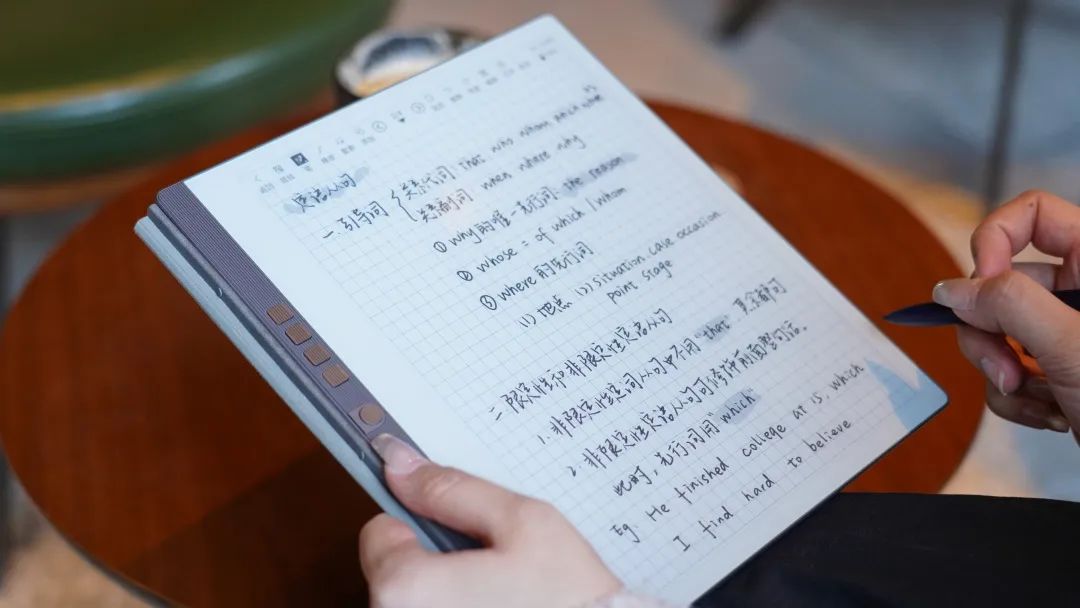 定语从句
一. 引导词 { 关系代词 that who whom which whose as
关系副词 when where why
① why的唯一先行词: the reason
② whose = of which / whom
③ where的先行词
(1) 地点 (2) situation case occasion
point stage
二 限定性和非限定性定语从句
1. 非限定性定语从句中不用"that"
2. 非限定性定语从句可修饰前面整句话。
此时,先行词用"which"
Eg. He finished college at 15, which
I find hard to believe